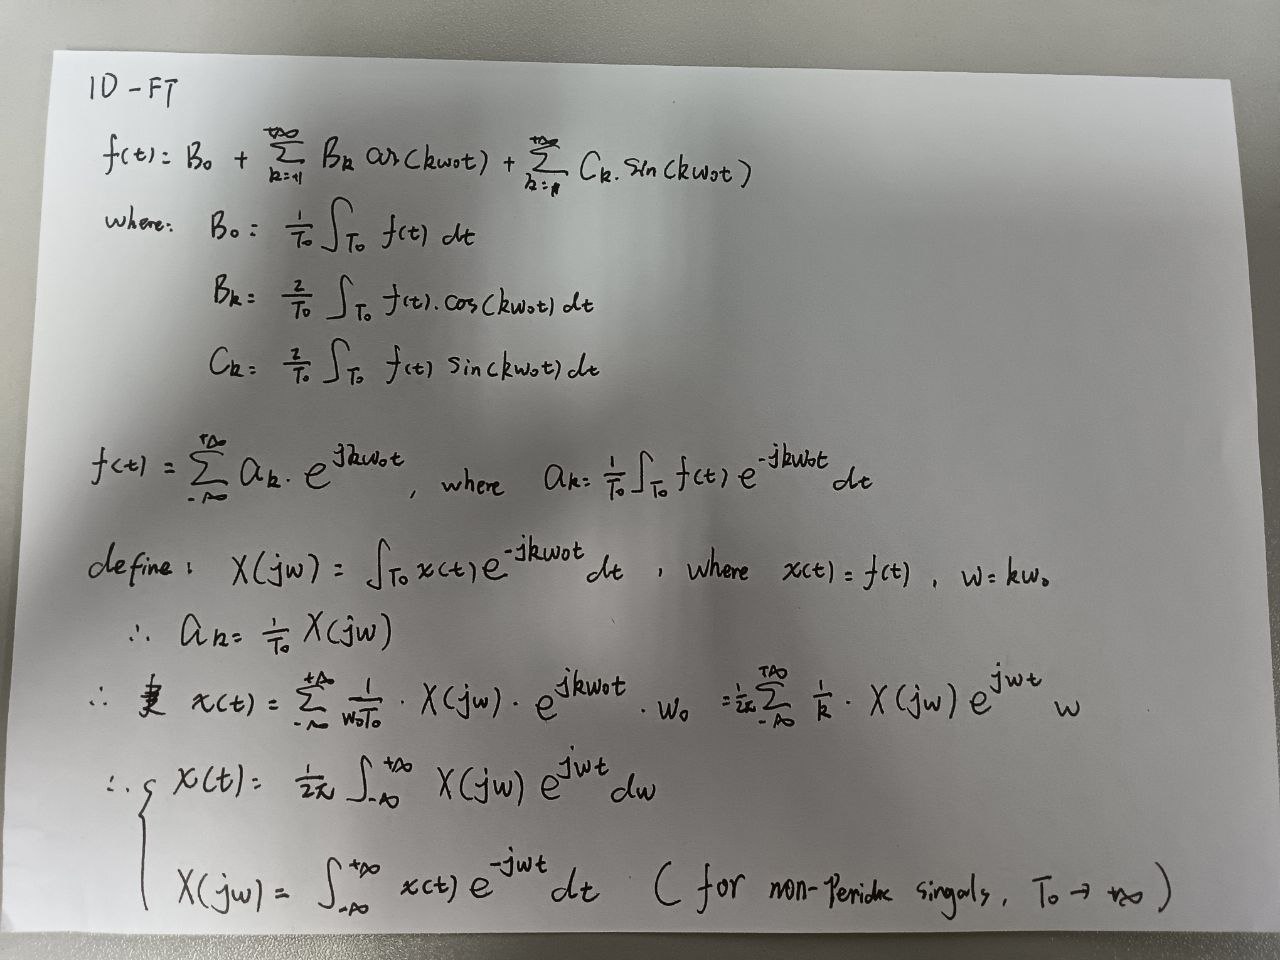 1D - FT
f(t) = B₀ + ∑_{k=1}^{+∞} Bₖ cos(kw₀t) + ∑_{k=1}^{+∞} Cₖ. sin(kw₀t)
where: B₀ = 1/T₀ ∫_{T₀} f(t) dt
Bₖ = 2/T₀ ∫_{T₀} f(t). cos(kw₀t) dt
Cₖ = 2/T₀ ∫_{T₀} f(t) sin(kw₀t) dt
f(t) = ∑_{-∞}^{+∞} aₖ. e^{jkw₀t}, where aₖ = 1/T₀ ∫_{T₀} f(t) e^{-jkw₀t} dt
define: X(jw) = ∫_{T₀} x(t) e^{-jkw₀t} dt, where x(t) = f(t), w = kw₀
∴ aₖ = 1/T₀ X(jw)
∴ x(t) = ∑_{-∞}^{+∞} 1/(w₀T₀) · X(jw) · e^{jkw₀t} · w₀ = 1/2π ∑_{-∞}^{+∞} 1/k · X(jw) e^{jwt} w
∴ { x(t) = 1/2π ∫_{-∞}^{+∞} X(jw) e^{jwt} dw
X(jw) = ∫_{-∞}^{+∞} x(t) e^{-jwt} dt ( for non-Peridic singals, T₀ → +∞ )